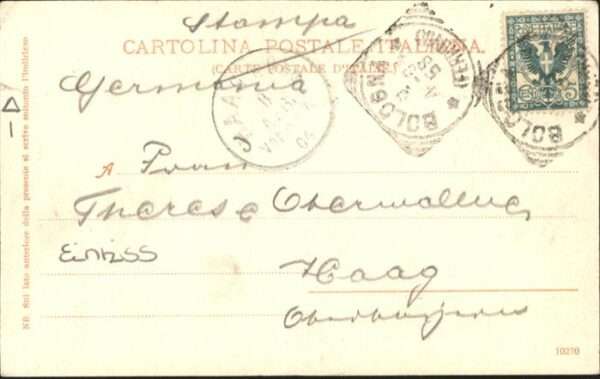 Stampa
CARTOLINA POSTALE ITALIANA.
(CARTE POSTALE D'ITALIE)
Germania
A Frau
Therese Oberwallner
Einriss
Haag
Oberbayern
NB Sul lato anteriore della presente si scrive soltanto l'indirizzo
BOLOGNA
(FERROVIA)
BOLOGNA
HAAG
04
10270